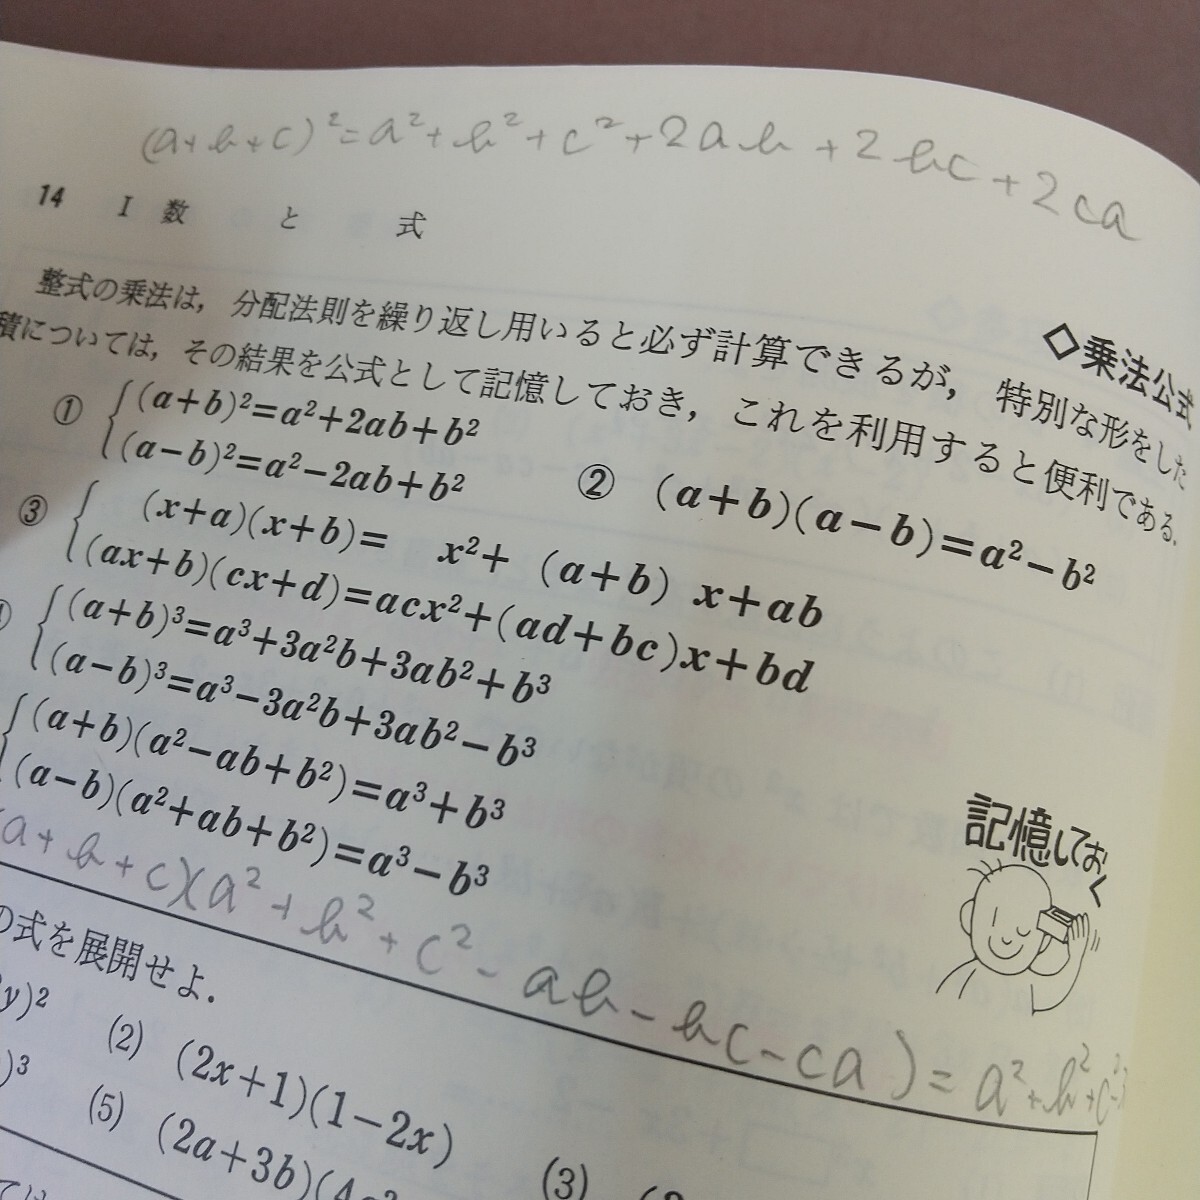 (a+b+c)²=a²+b²+c²+2ab+2bc+2ca
14 I 数 と 式
◇乗法公式
整式の乗法は, 分配法則を繰り返し用いると必ず計算できるが, 特別な形をした
積については, その結果を公式として記憶しておき, これを利用すると便利である.
① (a+b)²=a²+2ab+b²
(a−b)²=a²−2ab+b²
② (a+b)(a−b)=a²−b²
③ (x+a)(x+b)= x²+ (a+b) x+ab
(ax+b)(cx+d)=acx²+(ad+bc)x+bd
(a+b)³=a³+3a²b+3ab²+b³
(a−b)³=a³−3a²b+3ab²−b³
(a+b)(a²−ab+b²)=a³+b³
(a−b)(a²+ab+b²)=a³−b³
記憶しておく
(a+b+c)(a²+b²+c²-ab-bc-ca)=a²+b²+c²-
の式を展開せよ.
y)²
(2) (2x+1)(1−2x)
)³
(5) (2a+3b)(4a²
(3)
ては